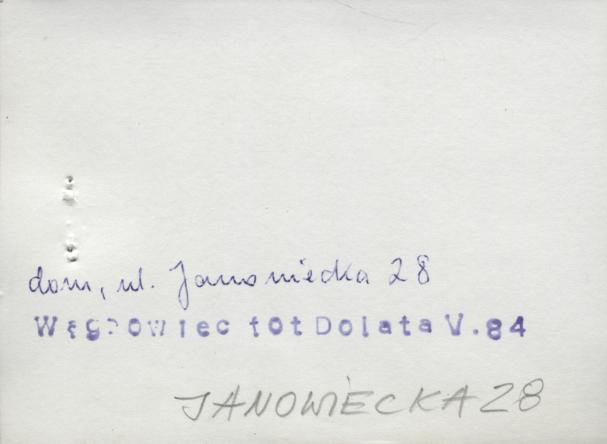 dom, ul. Janowiecka 28
Wągrowiec fot Dolata V.84
JANOWIECKA 28